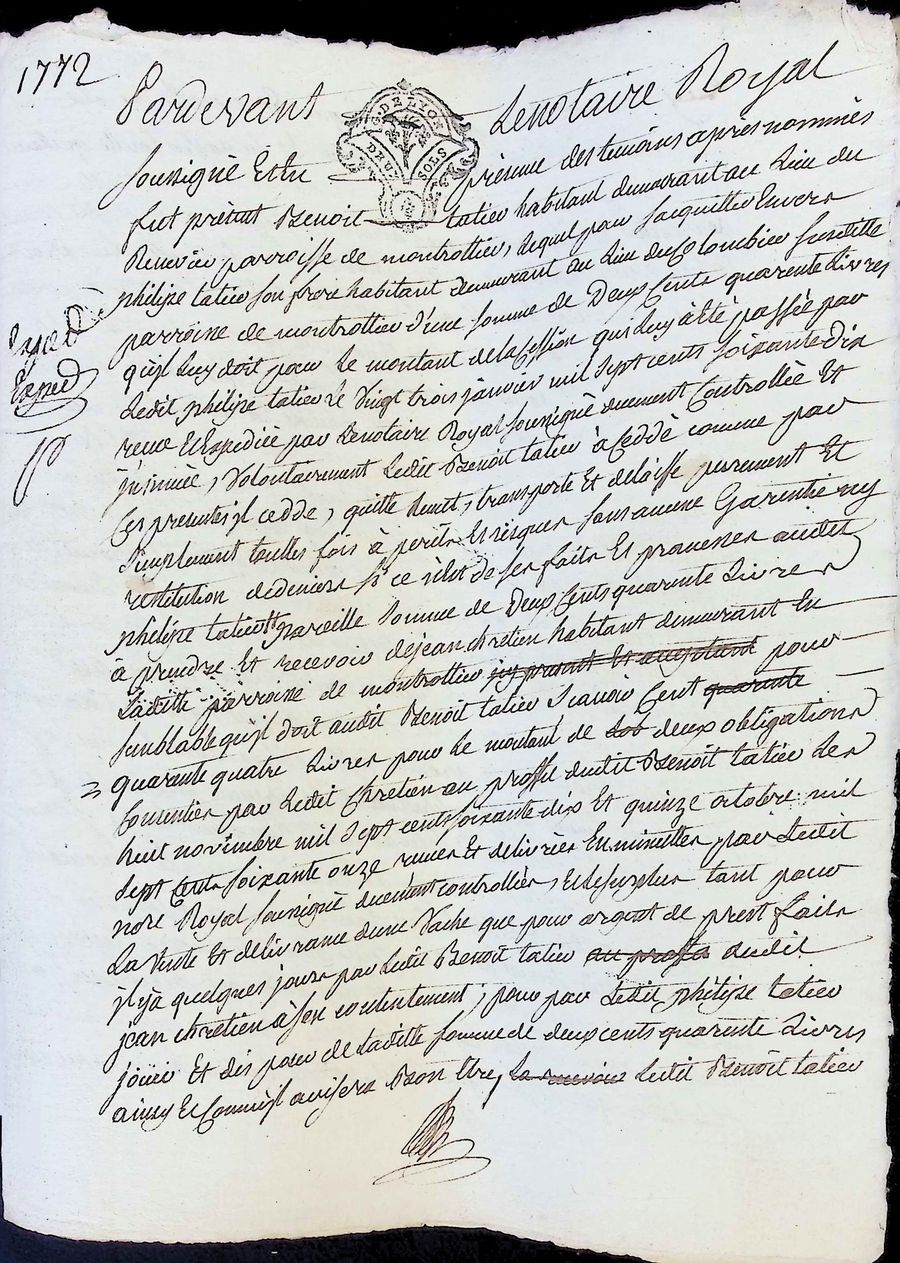 1772
Pardevant Lenotaire Royal
G. DE LYON
DEUX SOLS
soussigné Et En présence des temoins après nommés
fut présent Benoit tatieu habitant demeurant au lieu du
parroisse de montrottieu, lequel pour sacquitter Envers
philipe tatieu son frere habitant demeurant au lieu du Colombieu susditte
parroisse de montrottieu d'une somme de Deux Cents quarente Livres
qu'jl luy doit pour Le montant de la Cession qui luy à Eté passée par
Ledit philipe tatieu Le Vingt trois janvier mil sept cents soixante Dix
receue Et Expediée par Lenotaire Royal soussigné duement Controllée Et
jnsinuée, Volontairement Ledit Benoit tatieu à Ceddé comme par
Ces presentes jl cedde, quitte remet, transporte Et delaisse purement Et
simplement touttes fois à perils Et risques sans aucune Garentie ny
restitution dedeniers si ce n'est de ses faits Et promesses audit
philipe tatieu pareille somme de Deux Cents quarente Livres
à prendre Et recevoir de jean chretien habitant demeurant En
Laditte parroisse de montrottieu jcy present Et acceptant pour
semblable qu'jl doit audit Benoit tatieu scavoir Cent quarente
quarente quatre Livres pour Le montant de deux obligations
Consenties par Ledit Chretien au proffit dudit Benoit tatieu Les
huit novembre mil sept cents soixante dix Et quinze octobre mil
sept Cents soixante onze receues Et delivrées En minuttes par Ledit
nore Royal soussigné duement controllées, Et Le surplus tant pour
La Vente Et delivrance d'une Vache que pour argent de prest faits
jl y à quelques jours par Ledit Benoit tatieu au proffit dudit
jean chretien à son contentement, pour par Ledit philipe tatieu
jouir Et dis poser de Laditte somme de deux cents quarente Livres
ainsy Et Comme jl avisera Bon Etre, Ledit Benoit tatieu
Exped